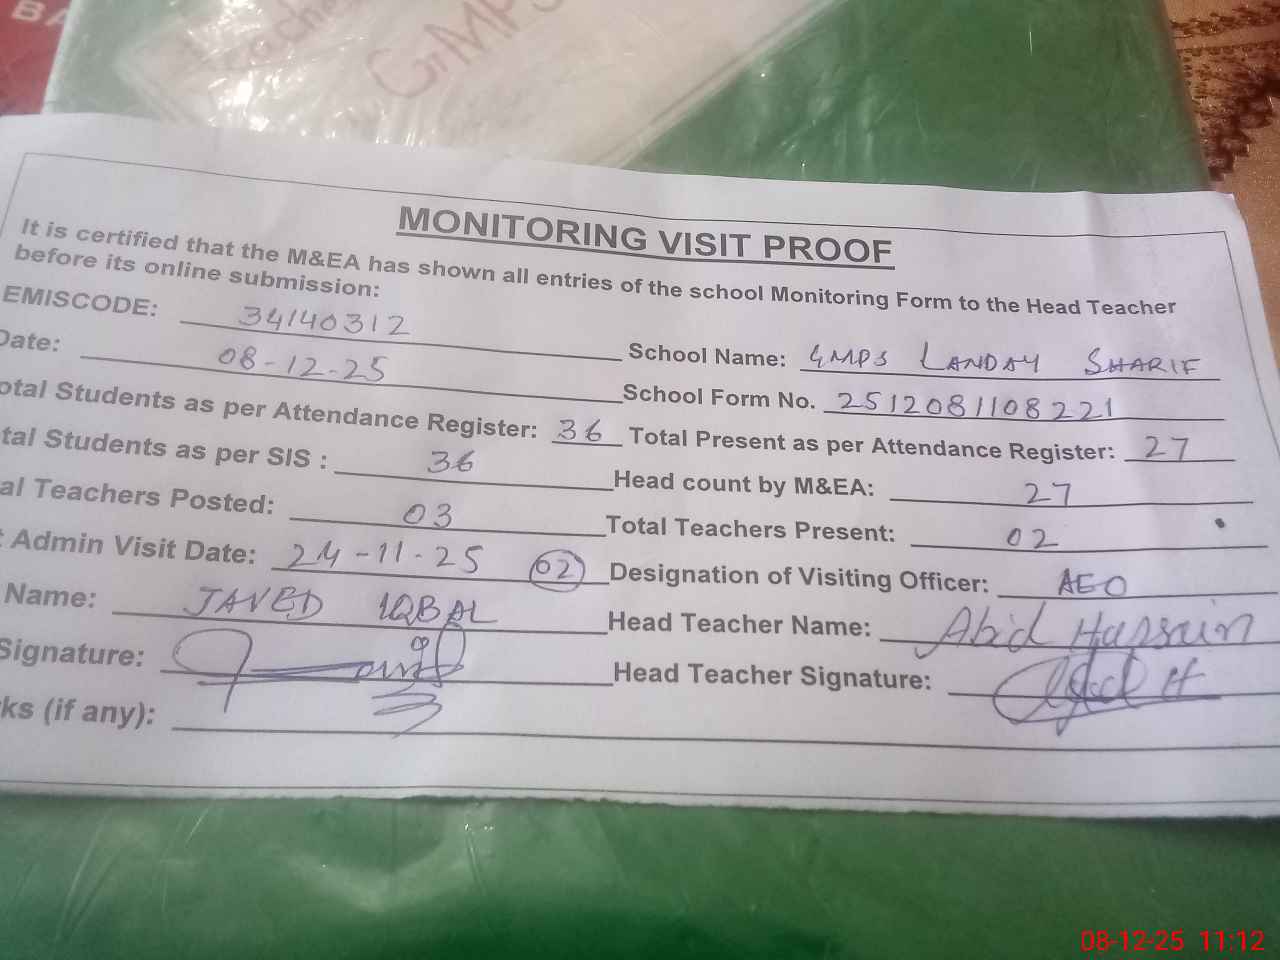 BA
GMPS
MONITORING VISIT PROOF
It is certified that the M&EA has shown all entries of the school Monitoring Form to the Head Teacher
before its online submission:
EMISCODE: 34140312 School Name: GMPS LANDAY SHARIF
Date: 08-12-25 School Form No. 2512081108221
otal Students as per Attendance Register: 36 Total Present as per Attendance Register: 27
tal Students as per SIS : 36 Head count by M&EA: 27
al Teachers Posted: 03 Total Teachers Present: 02
t Admin Visit Date: 24-11-25 02 Designation of Visiting Officer: AEO
Name: JAVED IQBAL Head Teacher Name: Abid Hussain
Signature: Head Teacher Signature:
ks (if any):
08-12-25 11:12